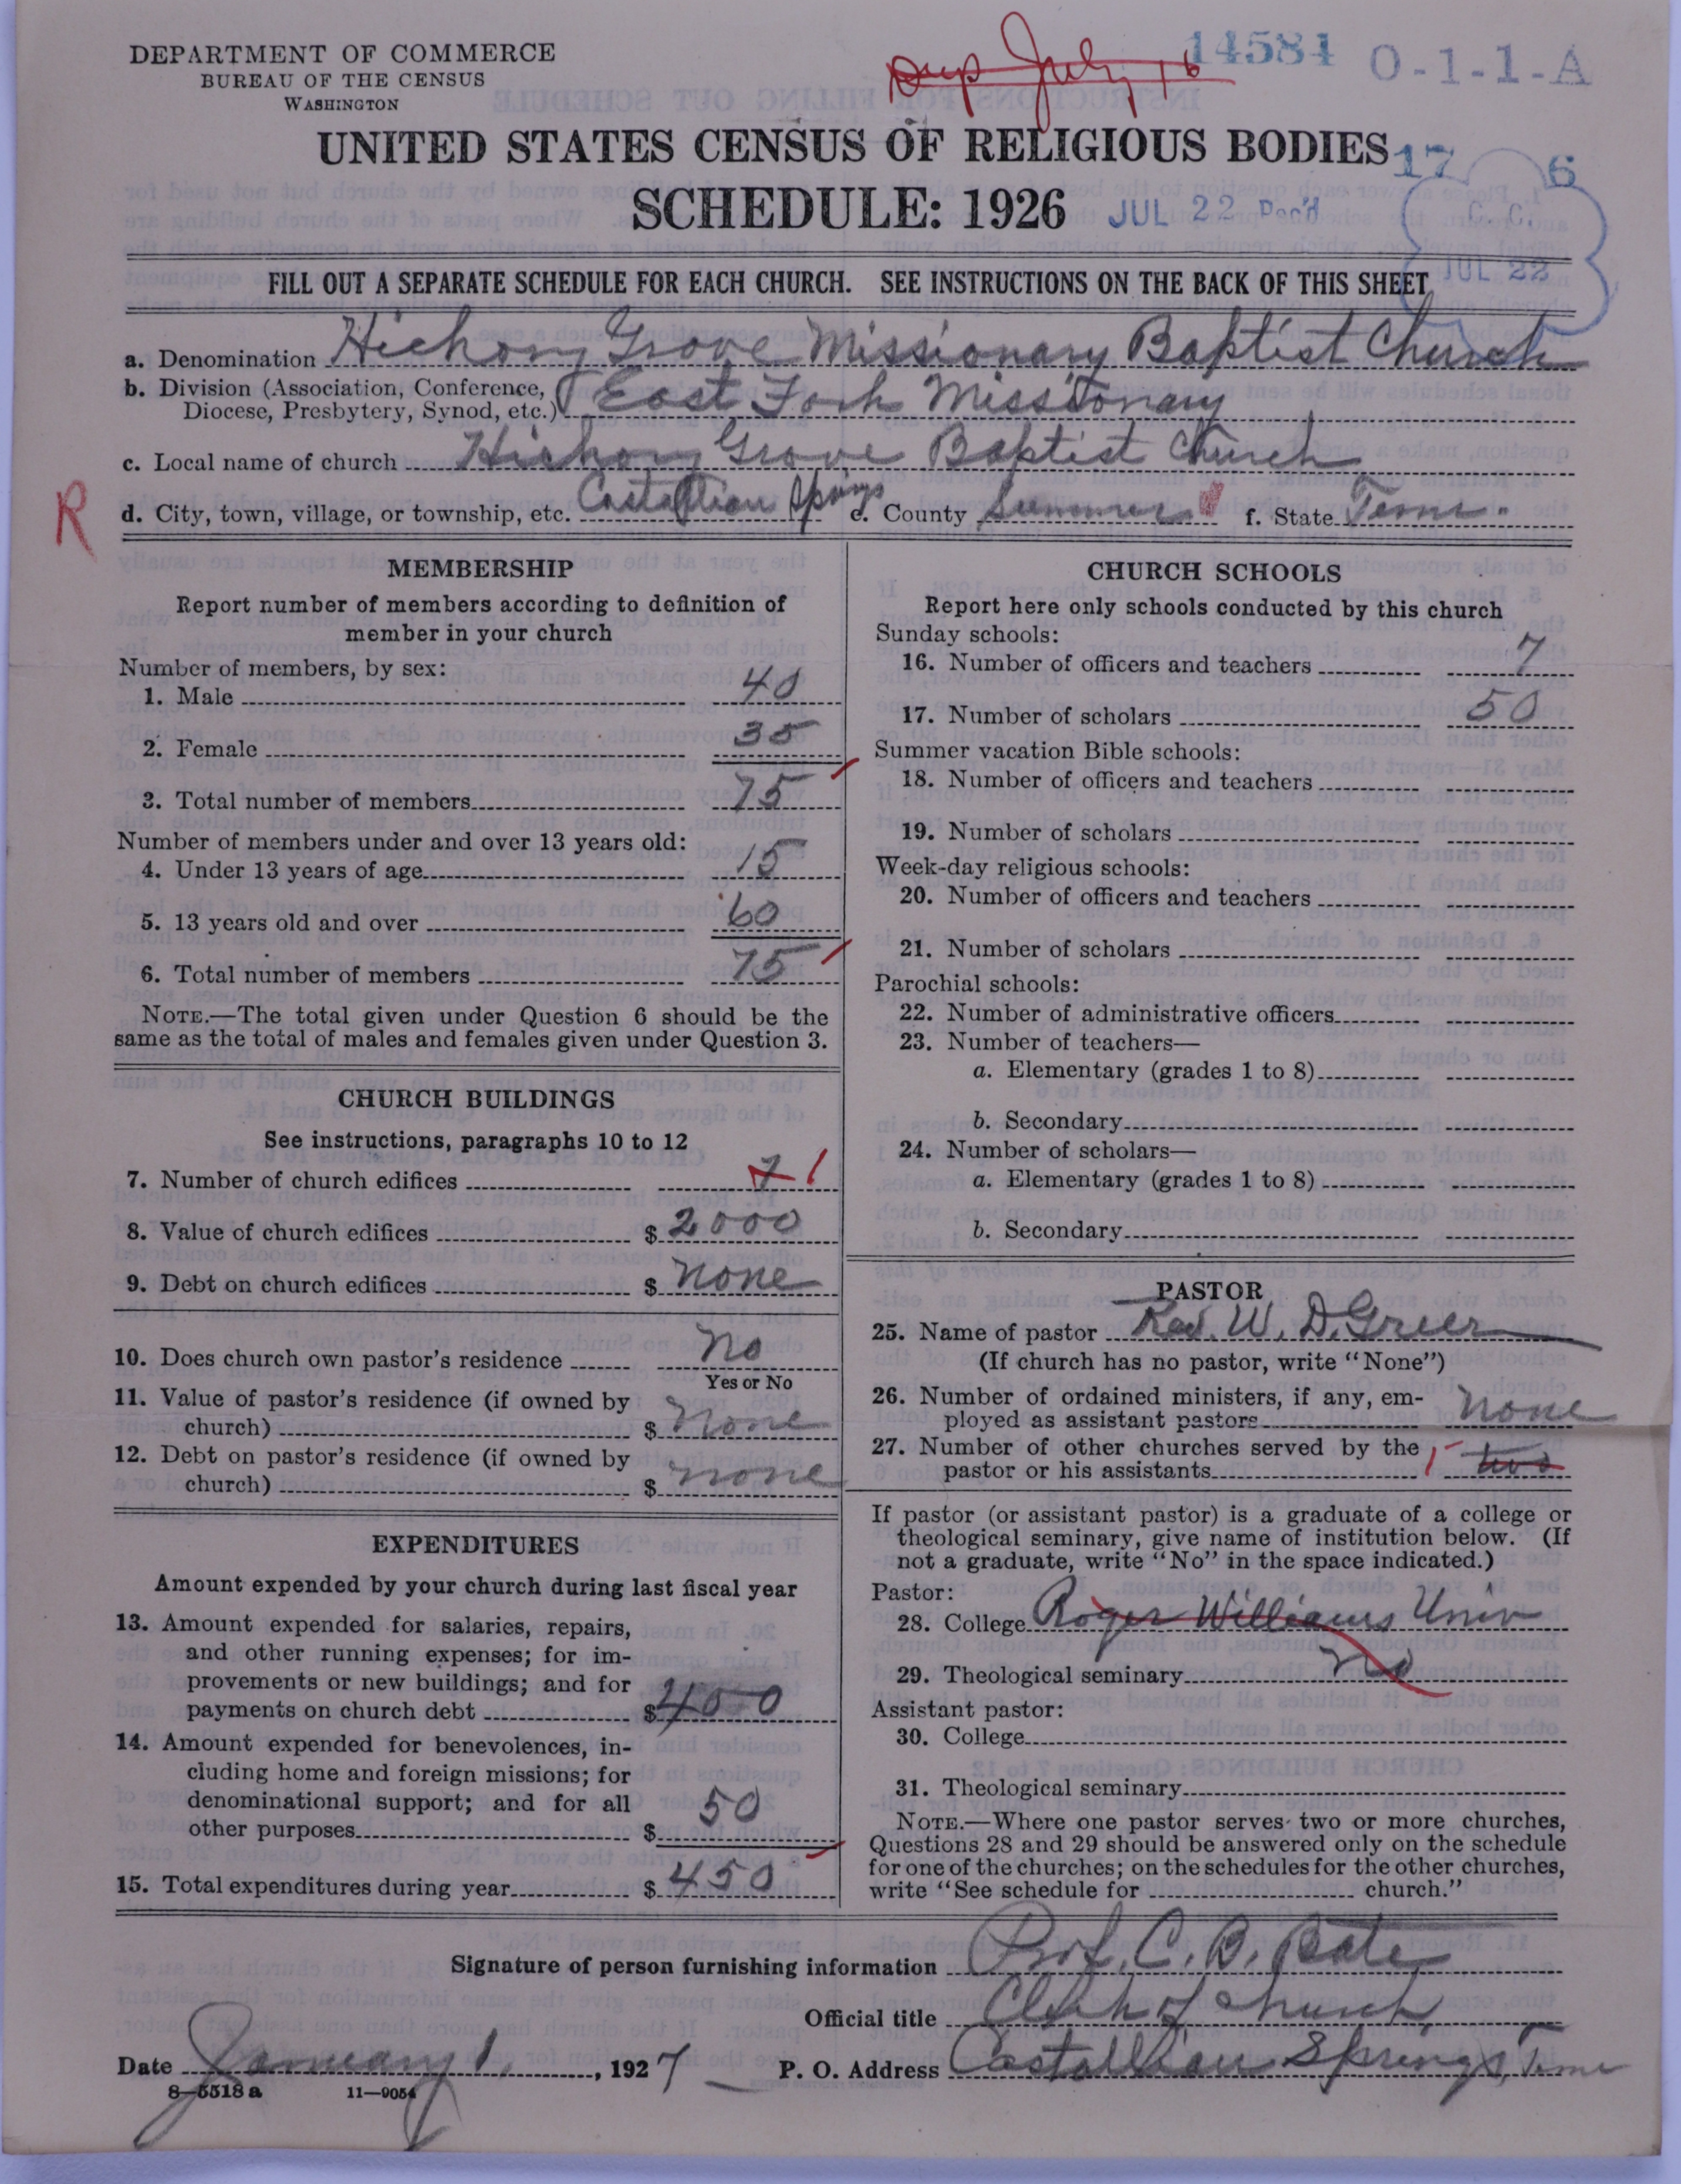 DEPARTMENT OF COMMERCE
BUREAU OF THE CENSUS
WASHINGTON
Dup July 16
14584 O-1-1-A
UNITED STATES CENSUS OF RELIGIOUS BODIES
17 6
SCHEDULE: 1926
JUL 22 Rec'd
C. C.
JUL 22
FILL OUT A SEPARATE SCHEDULE FOR EACH CHURCH. SEE INSTRUCTIONS ON THE BACK OF THIS SHEET
a. Denomination Hickory Grove Missionary Baptist Church
b. Division (Association, Conference, Diocese, Presbytery, Synod, etc.) East Fork Missionary
c. Local name of church Hickory Grove Baptist Church
R
d. City, town, village, or township, etc. Castallian Springs e. County Sumner f. State Tenn.
MEMBERSHIP
Report number of members according to definition of
member in your church
Number of members, by sex:
1. Male 40
2. Female 35
3. Total number of members 75
Number of members under and over 13 years old:
4. Under 13 years of age 15
5. 13 years old and over 60
6. Total number of members 75
NOTE.—The total given under Question 6 should be the
same as the total of males and females given under Question 3.
CHURCH BUILDINGS
See instructions, paragraphs 10 to 12
7. Number of church edifices 1 1
8. Value of church edifices $ 2000
9. Debt on church edifices $ none
10. Does church own pastor's residence No
Yes or No
11. Value of pastor's residence (if owned by
church) $ none
12. Debt on pastor's residence (if owned by
church) $ none
EXPENDITURES
Amount expended by your church during last fiscal year
13. Amount expended for salaries, repairs,
and other running expenses; for im-
provements or new buildings; and for
payments on church debt $ 400
14. Amount expended for benevolences, in-
cluding home and foreign missions; for
denominational support; and for all
other purposes $ 50
15. Total expenditures during year $ 450
CHURCH SCHOOLS
Report here only schools conducted by this church
Sunday schools:
16. Number of officers and teachers 7
17. Number of scholars 50
Summer vacation Bible schools:
18. Number of officers and teachers
19. Number of scholars
Week-day religious schools:
20. Number of officers and teachers
21. Number of scholars
Parochial schools:
22. Number of administrative officers
23. Number of teachers—
a. Elementary (grades 1 to 8)
b. Secondary
24. Number of scholars—
a. Elementary (grades 1 to 8)
b. Secondary
PASTOR
25. Name of pastor Rev. W. D. Greer
(If church has no pastor, write "None")
26. Number of ordained ministers, if any, em-
ployed as assistant pastors none
27. Number of other churches served by the
pastor or his assistants 1 two
If pastor (or assistant pastor) is a graduate of a college or
theological seminary, give name of institution below. (If
not a graduate, write "No" in the space indicated.)
Pastor:
28. College Roger Williams Univ
29. Theological seminary no
Assistant pastor:
30. College
31. Theological seminary
NOTE.—Where one pastor serves two or more churches,
Questions 28 and 29 should be answered only on the schedule
for one of the churches; on the schedules for the other churches,
write "See schedule for church."
Signature of person furnishing information Prof. C. B. Bate
Official title Clerk of church
Date January 1, 1927 P. O. Address Castallian Springs, Tenn
8—5518a 11—9054